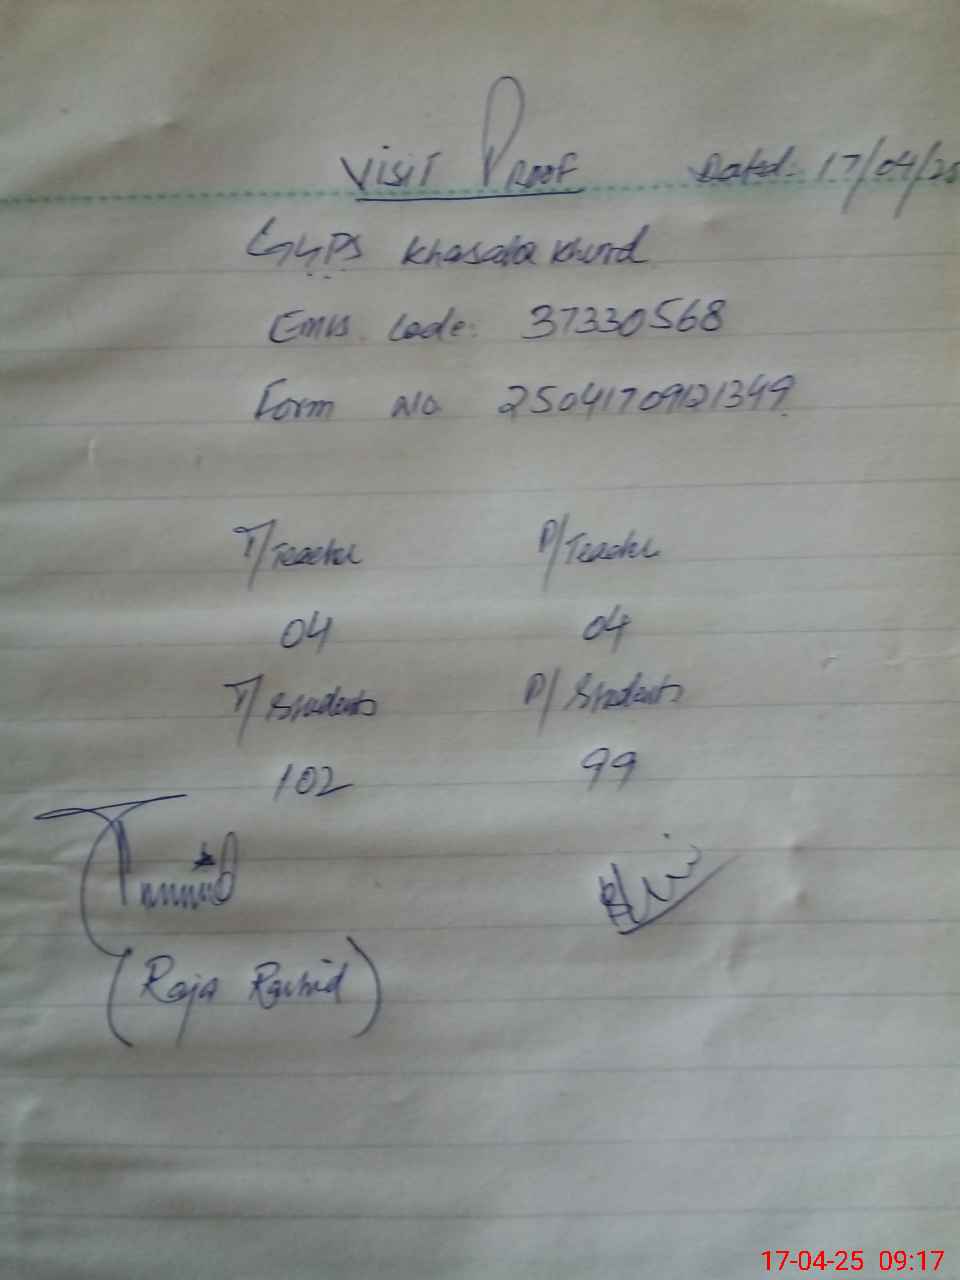 Visit Proof Dated: 17/04/25
GGPS Khasala Khurd
Emis. Code: 37330568
Form No. 25041709121349
T/Teacher P/Teacher
04 04
T/Students P/Students
102 99
(Raja Rashid)
17-04-25 09:17